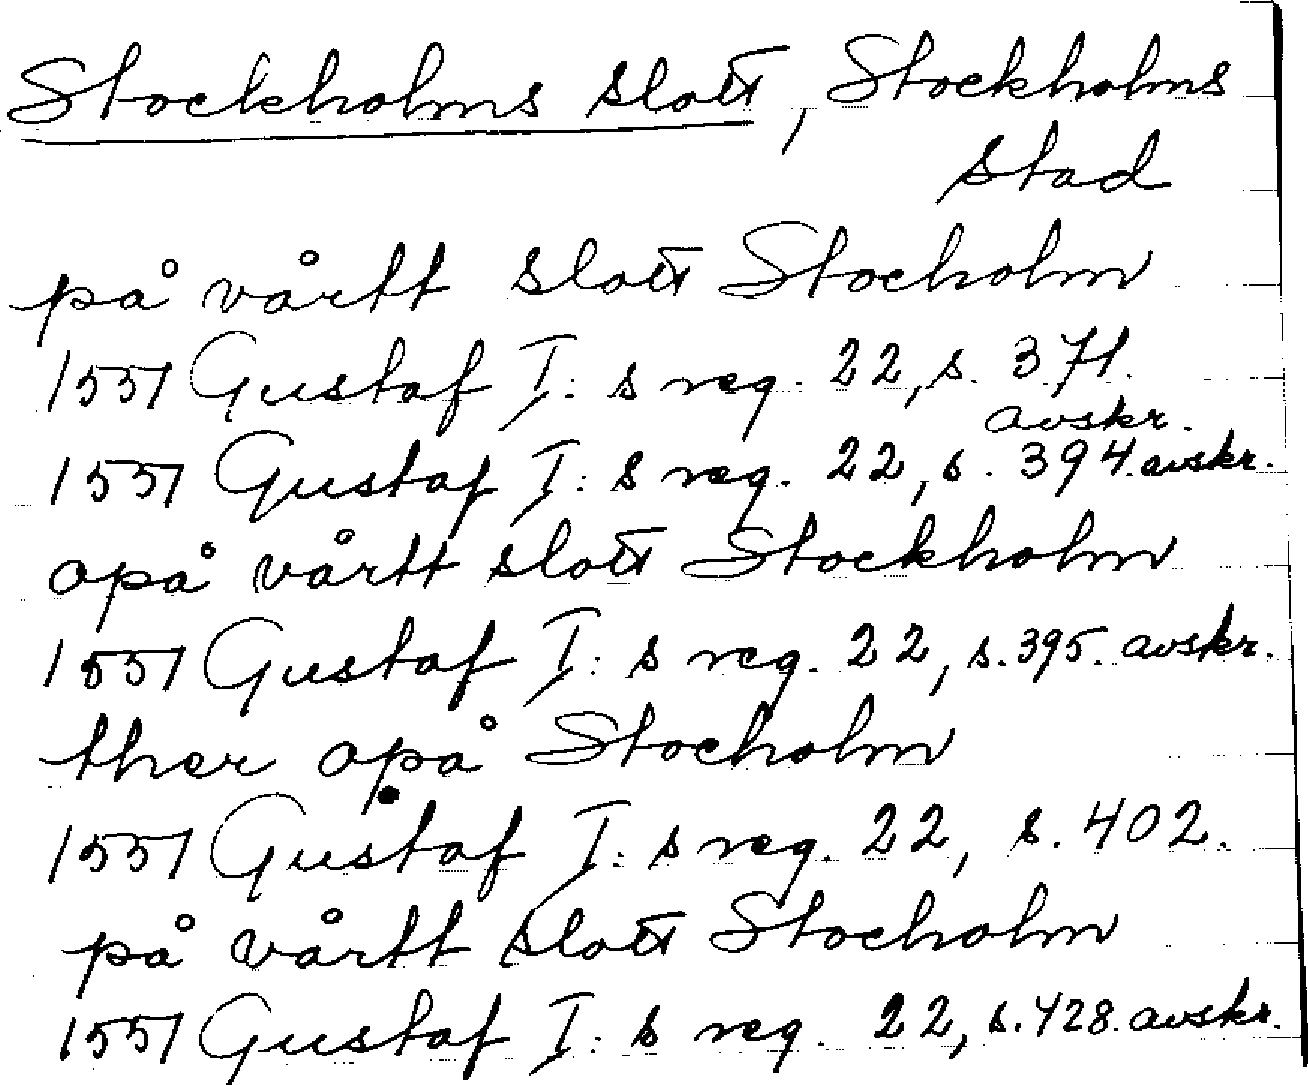 Stockholms slott, Stockholms
stad
på vårtt slott Stocholm
1551 Gustaf I:s reg. 22, s. 371.
avskr.
1551 Gustaf I:s reg. 22, s. 394. avskr.
opå vårtt slott Stockholm
1551 Gustaf I:s reg. 22, s. 395. avskr.
ther opå Stocholm
1551 Gustaf I:s reg. 22, s. 402.
på vårtt slott Stocholm
1551 Gustaf I:s reg. 22, s. 428. avskr.